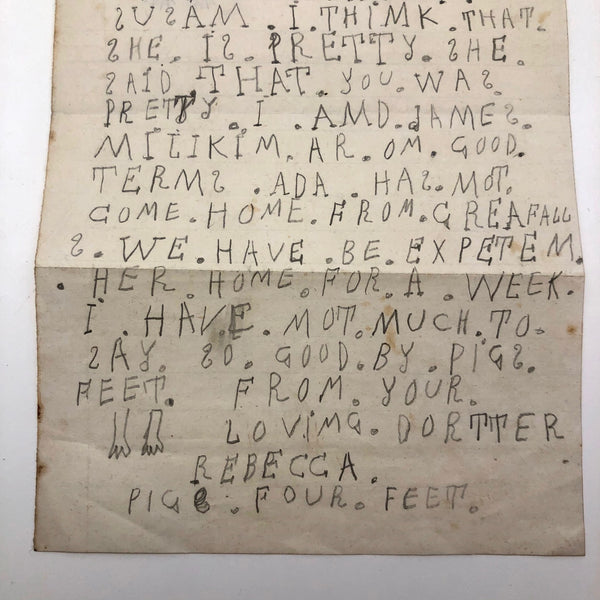 SUSAM. I. THIMK. THAT.
SHE. IS. PRETTY. SHE.
SAID. THAT. YOU. WAS.
PRETTY. I. AMD. JAMES.
MILIKIM. AR. OM. GOOD.
TERMS. ADA. HAS. MOT.
COME. HOME. FROM. GREAFALL
S. WE. HAVE. BE. EXPETEM.
. HER. HOME. FOR. A. WEEK.
I. HAVE. MOT. MUCH. TO.
SAY. SO. GOOD. BY. PIGS.
FEET. FROM. YOUR.
LOVIMG. DORTTER
REBECCA.
PIGS. FOUR. FEET.